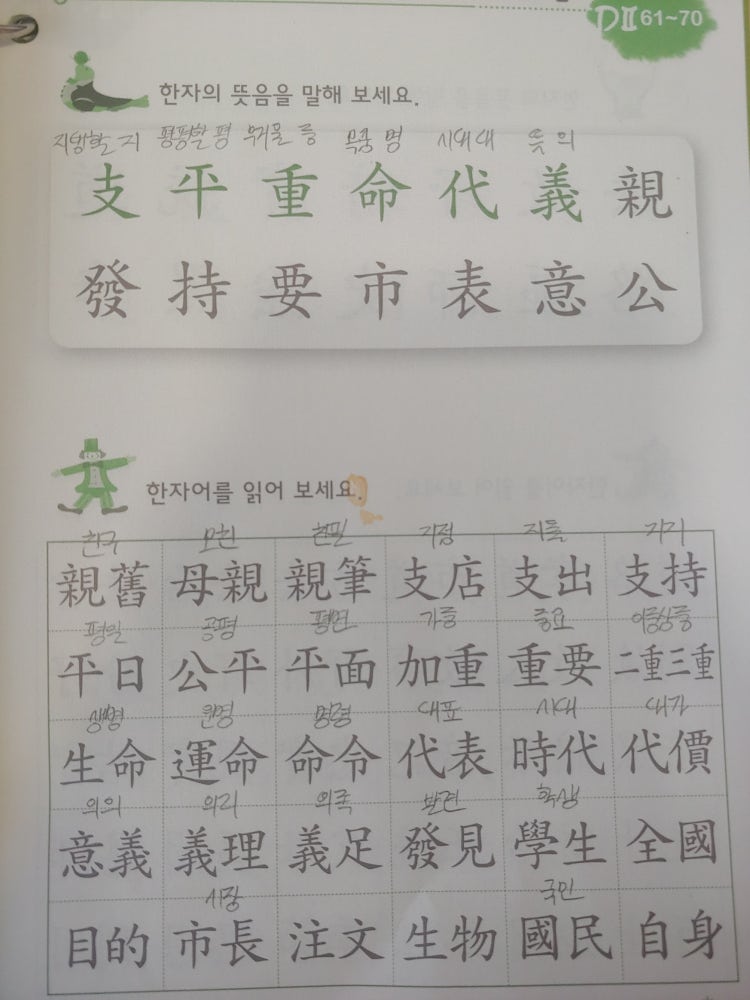 DⅡ61~70
한자의 뜻음을 말해 보세요.
지탱할 지 평평할 평 무거울 중 목숨 명 시대 대 뜻 의
支 平 重 命 代 義 親
發 持 要 市 表 意 公
한자어를 읽어 보세요.
친구 모친 친필 지점 지출 지지
親舊 母親 親筆 支店 支出 支持
평일 공평 평면 가중 중요 이중삼중
平日 公平 平面 加重 重要 二重三重
생명 운명 명령 대표 시대 대가
生命 運命 命令 代表 時代 代價
의의 의리 의족 발견 학생
意義 義理 義足 發見 學生 全國
시장 국민
目的 市長 注文 生物 國民 自身